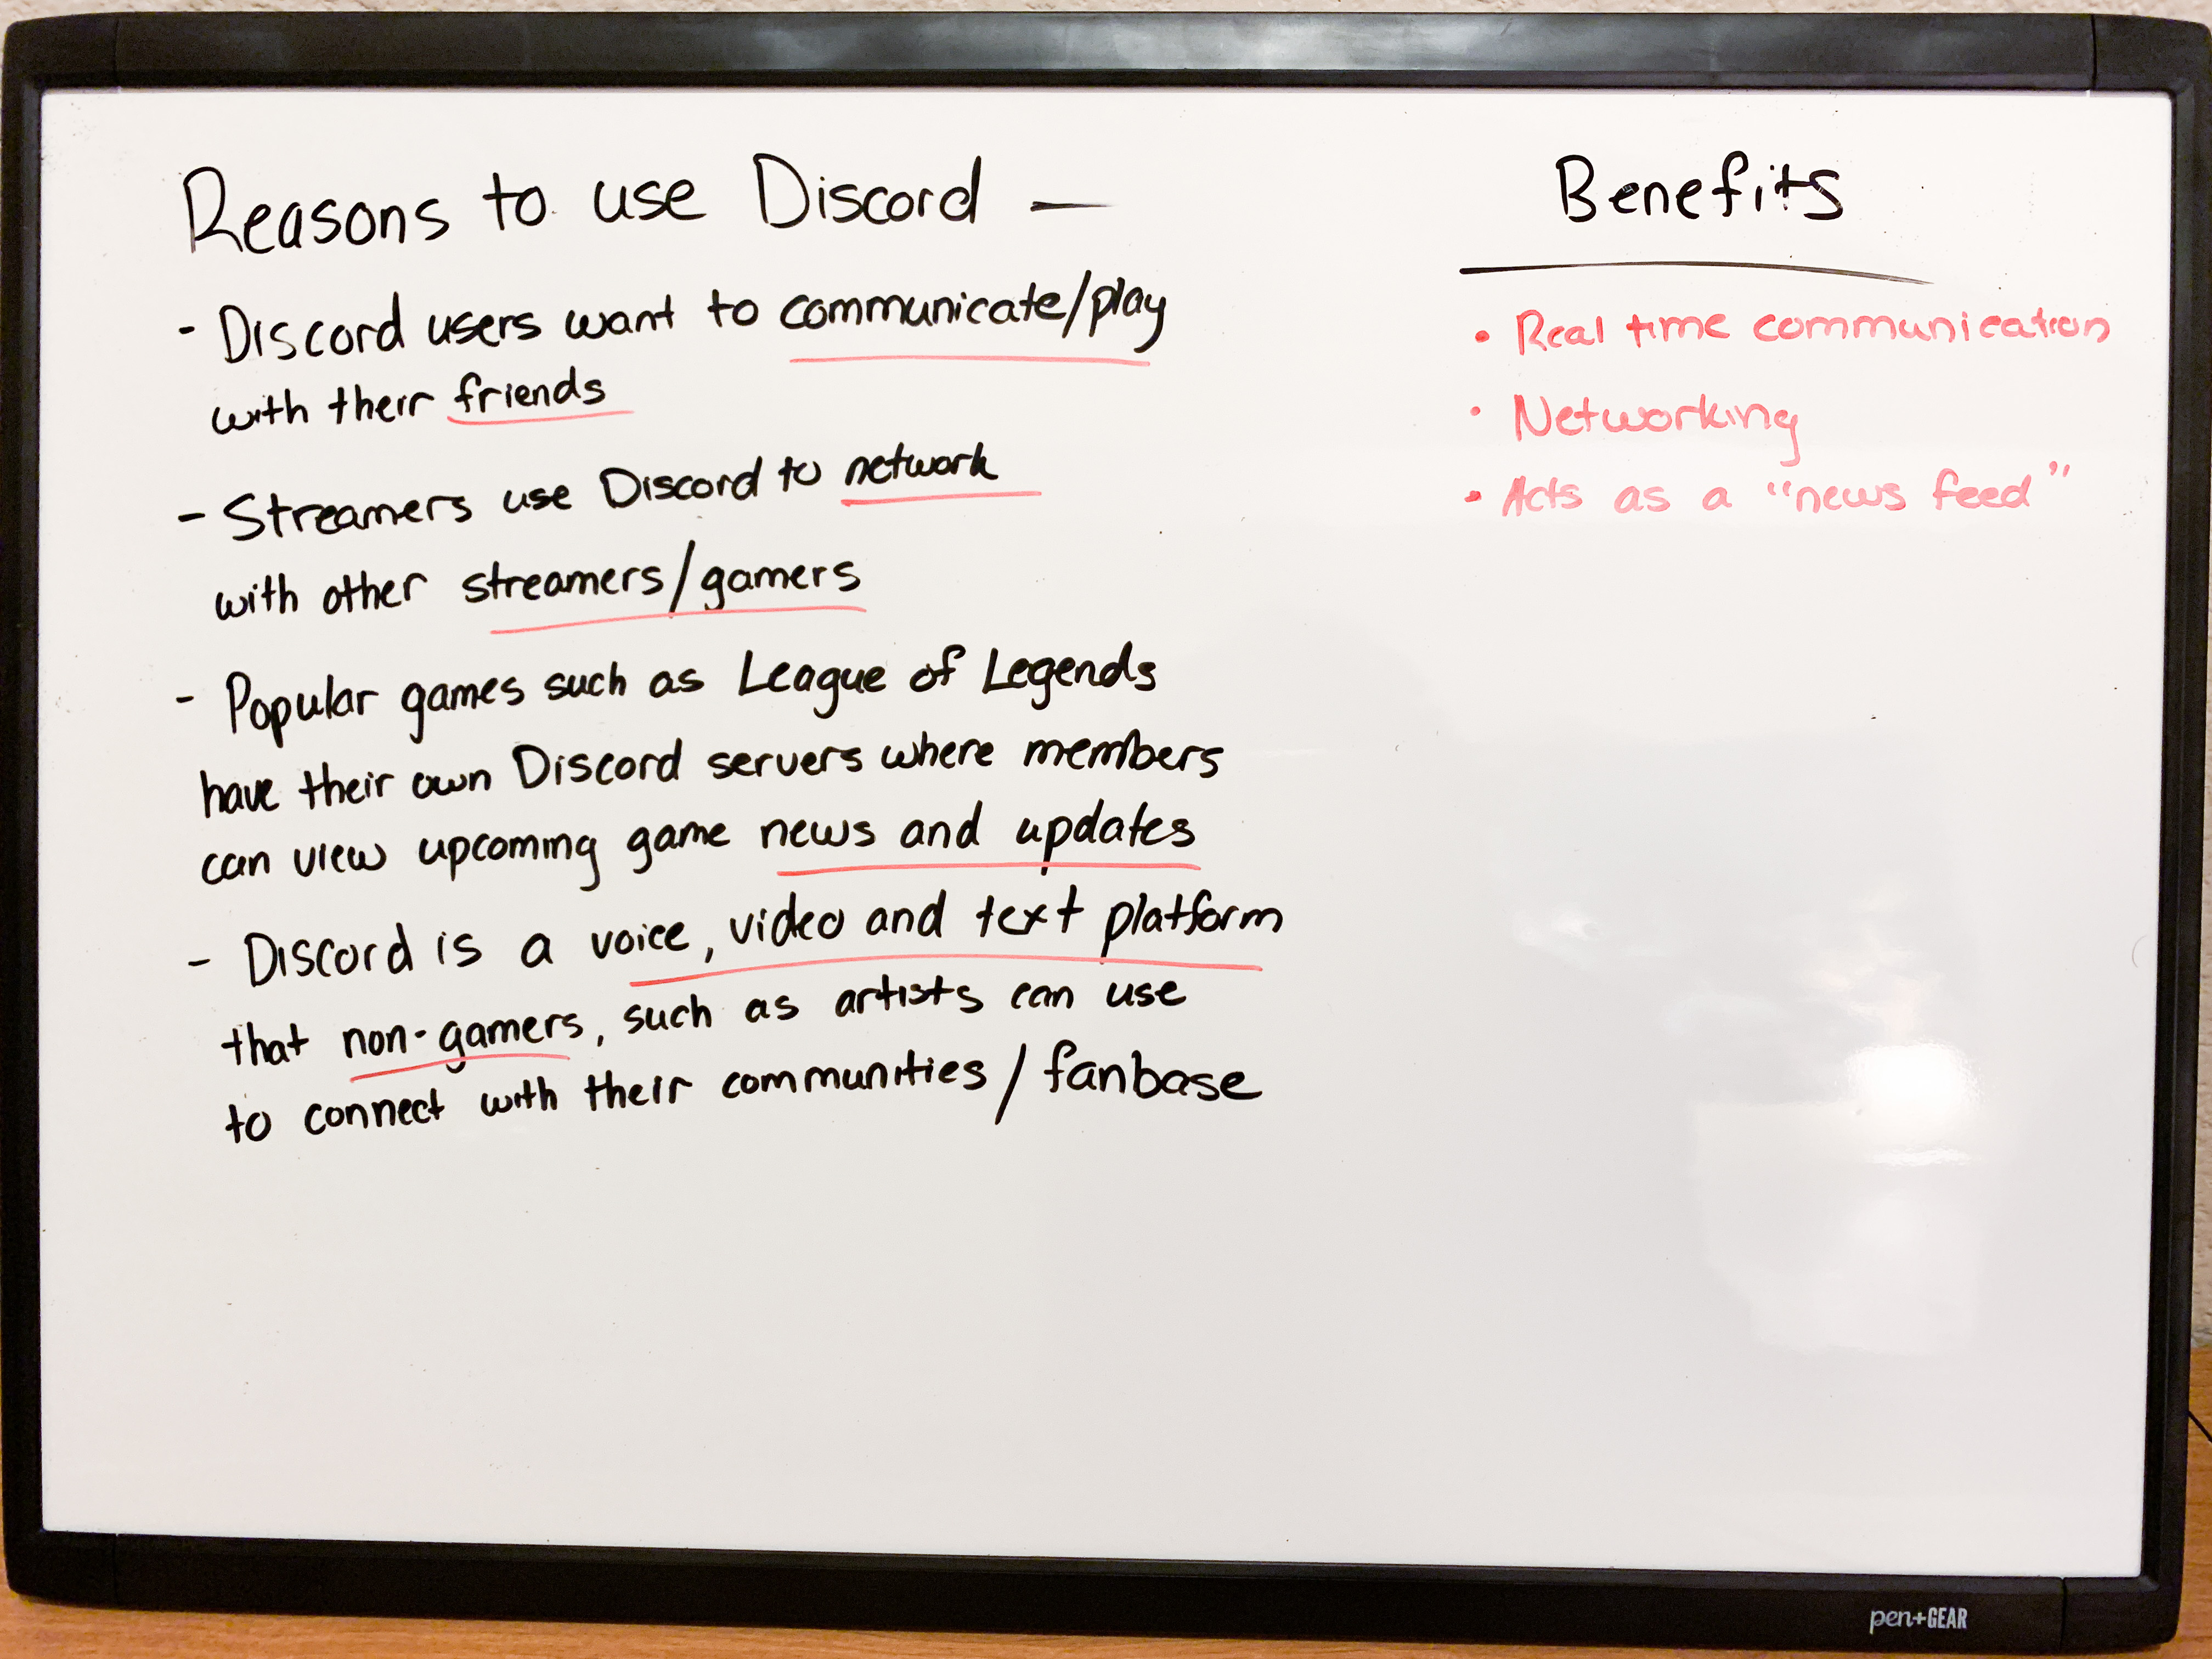 Reasons to use Discord —
- Discord users want to communicate/play
with their friends
- Streamers use Discord to network
with other streamers/gamers
- Popular games such as League of Legends
have their own Discord servers where members
can view upcoming game news and updates
- Discord is a voice, video and text platform
that non-gamers, such as artists can use
to connect with their communities/fanbase
Benefits
• Real time communication
• Networking
• Acts as a "news feed"
pen+GEAR